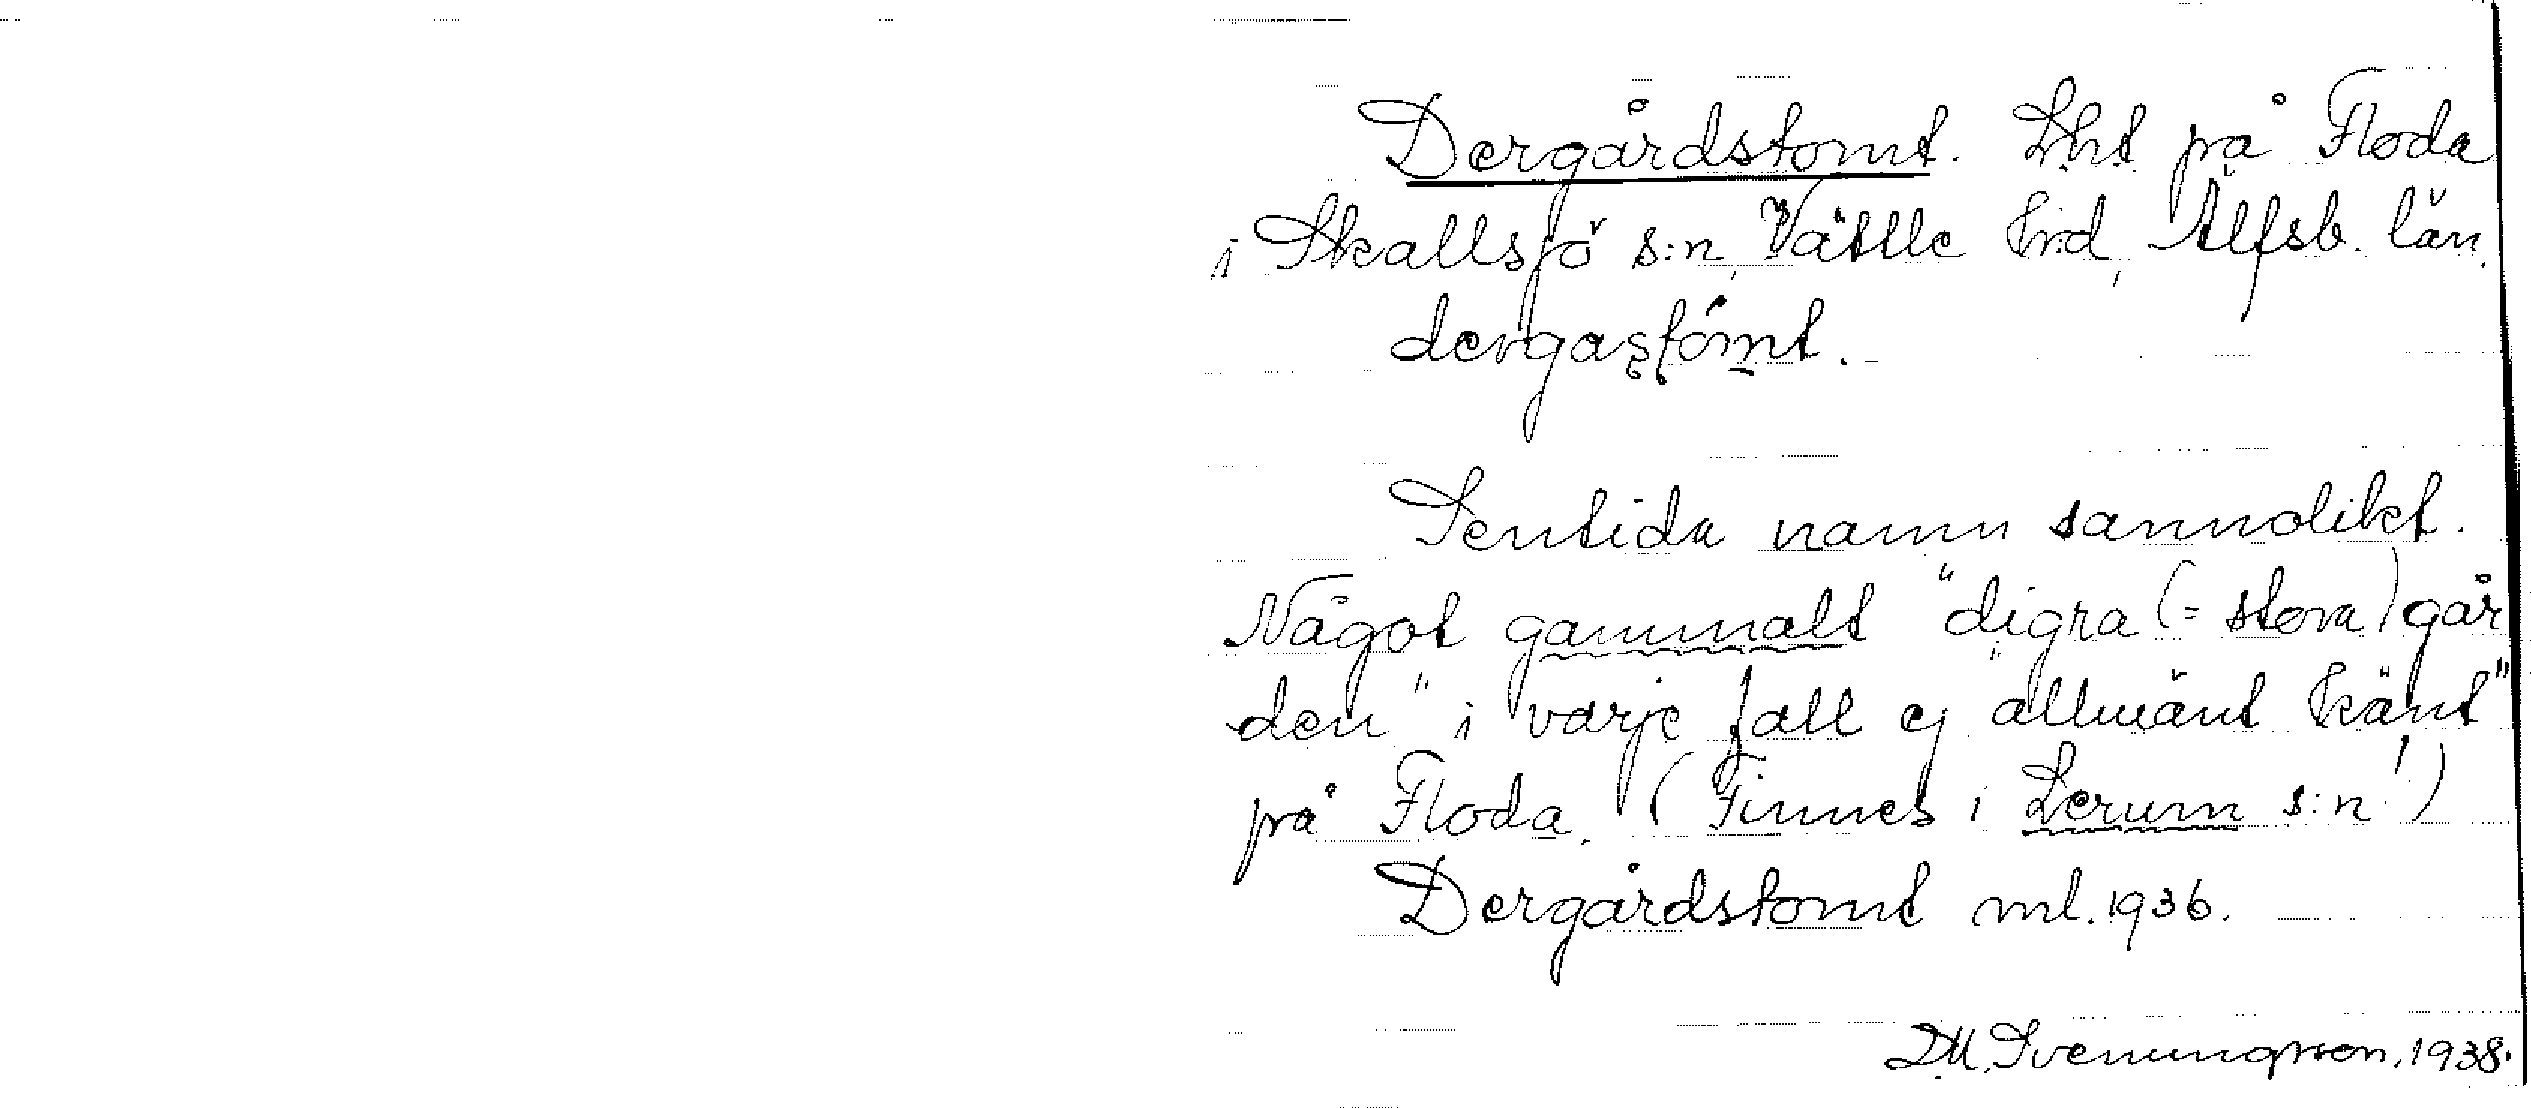 Dergårdstomt. Lht på Floda
i Skallsjö s:n, Vättle hrd, Älfsb. län.
dergastómt.
Sentida namn sannolikt.
Något gammalt "digra (= stora) går
den" i varje fall ej "allmänt känt"
på Floda. (Finnes i Lerum s:n!)
Dergårdstomt ml. 1936.
D.M. Svenungsson, 1938.